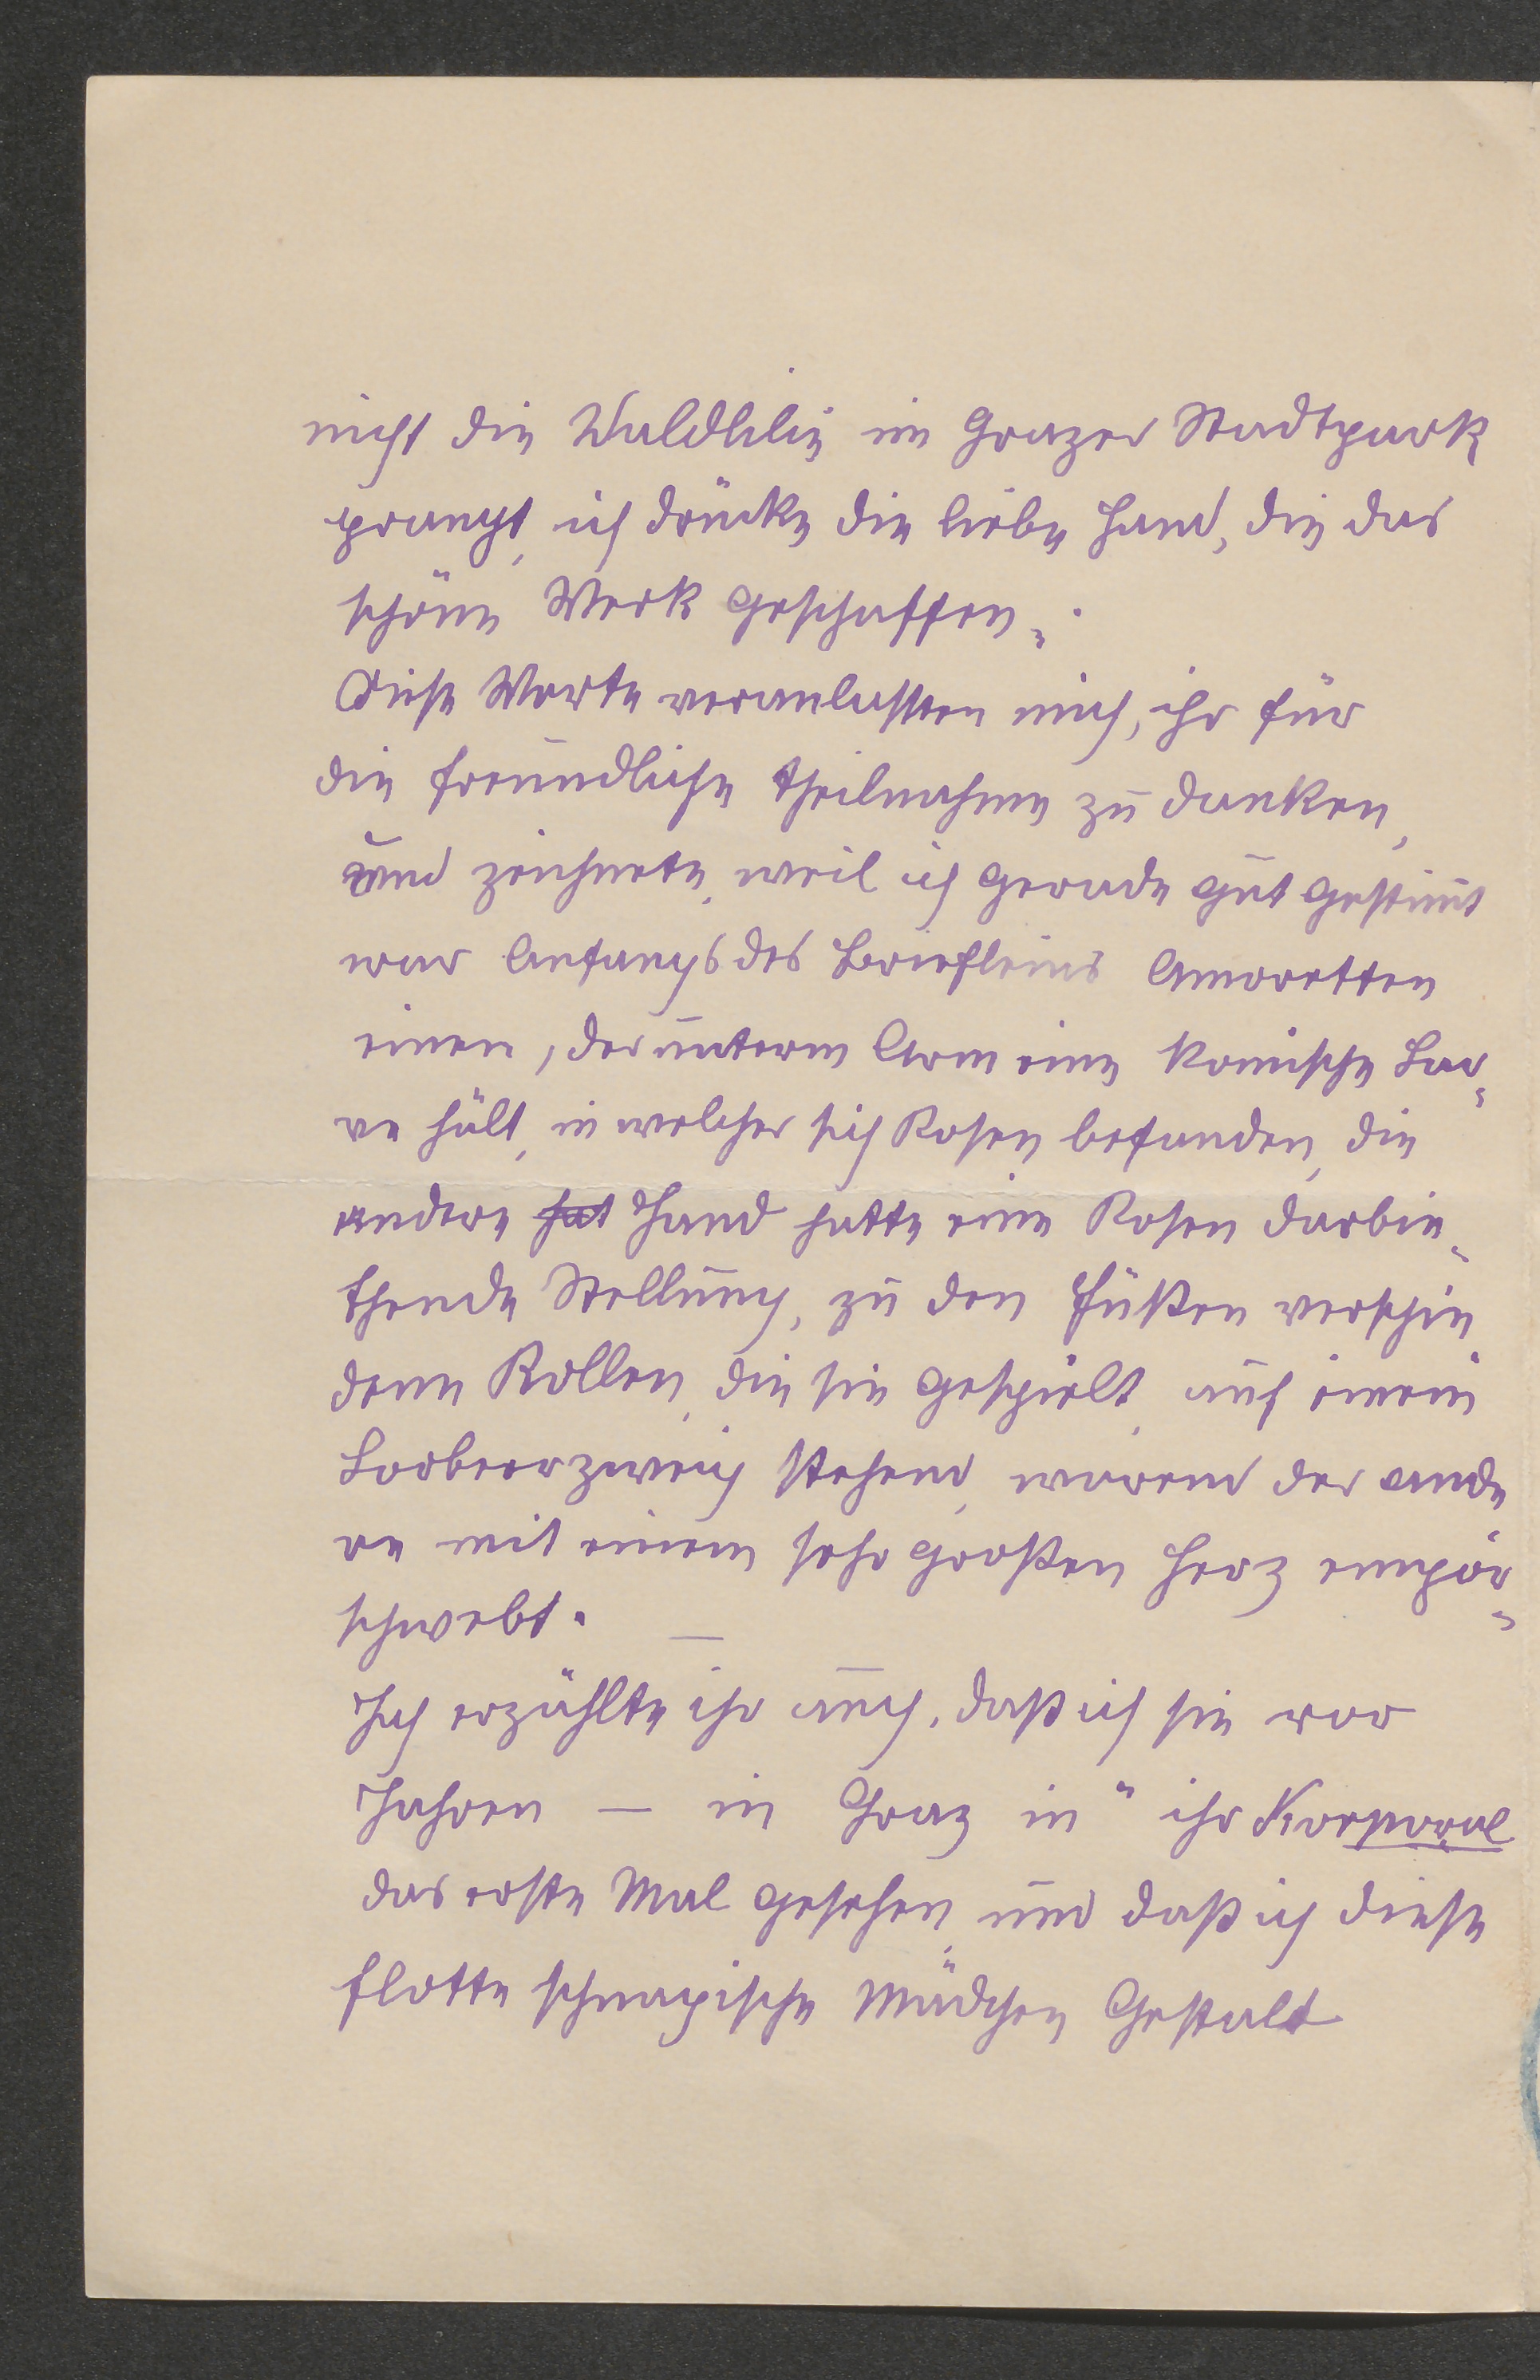 nicht die Waldlilie im Grazer Stadtpark
prangt, ich drücke die liebe Hand, die das
schöne Werk geschaffen.
Diese Worte veranlassten mich, ihr für
die freundliche Theilnahme zu danken,
und zeichnete, weil ich gerade gut gestimt
war Anfangs des Briefleins Amoretten
einen, der unterm Arm eine komische Lar¬
ve hält, in welcher sich Rosen befanden, die
andere hat Hand hatte eine Rosen darbie¬
thende Stellung, zu den Füßen verschie
dene Rollen, die sie gespielt, auf einem
Lorbeerzweig stehend, warend der ande
re mit einem sehr großen Herz empor¬
schwebt. —
Ich erzählte ihr auch, daß ich sie vor
Jahren — in Graz in " ihr Korporal
das erste Mal gesehen, und daß ich diese
flotte schnapische Mädchen Gestalt